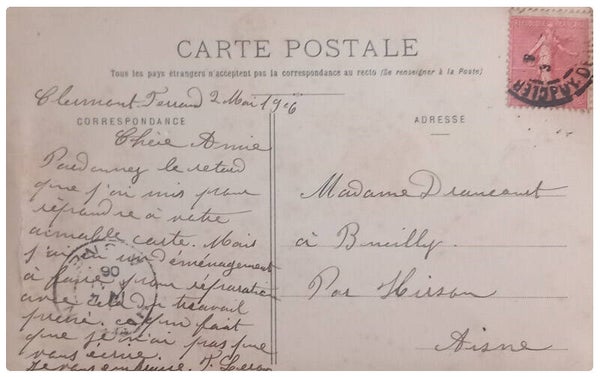 CARTE POSTALE
Tous les pays étrangers n'acceptent pas la correspondance au recto (Se renseigner à la Poste)
Clermont Ferrand 2 Mai 1906
CORRESPONDANCE
Chère Amie
Pardonnez le retard
que j'ai mis pour
répondre à votre
aimable carte. Mais
j'ai eu un déménagement
à faire pour réparation
avec cela du travail
pressé. ce qui fait
que je n'ai pas pu
vous écrire.
Je vous embrasse.
ADRESSE
Madame Drancourt
à Bucilly
Par Hirson
Aisne